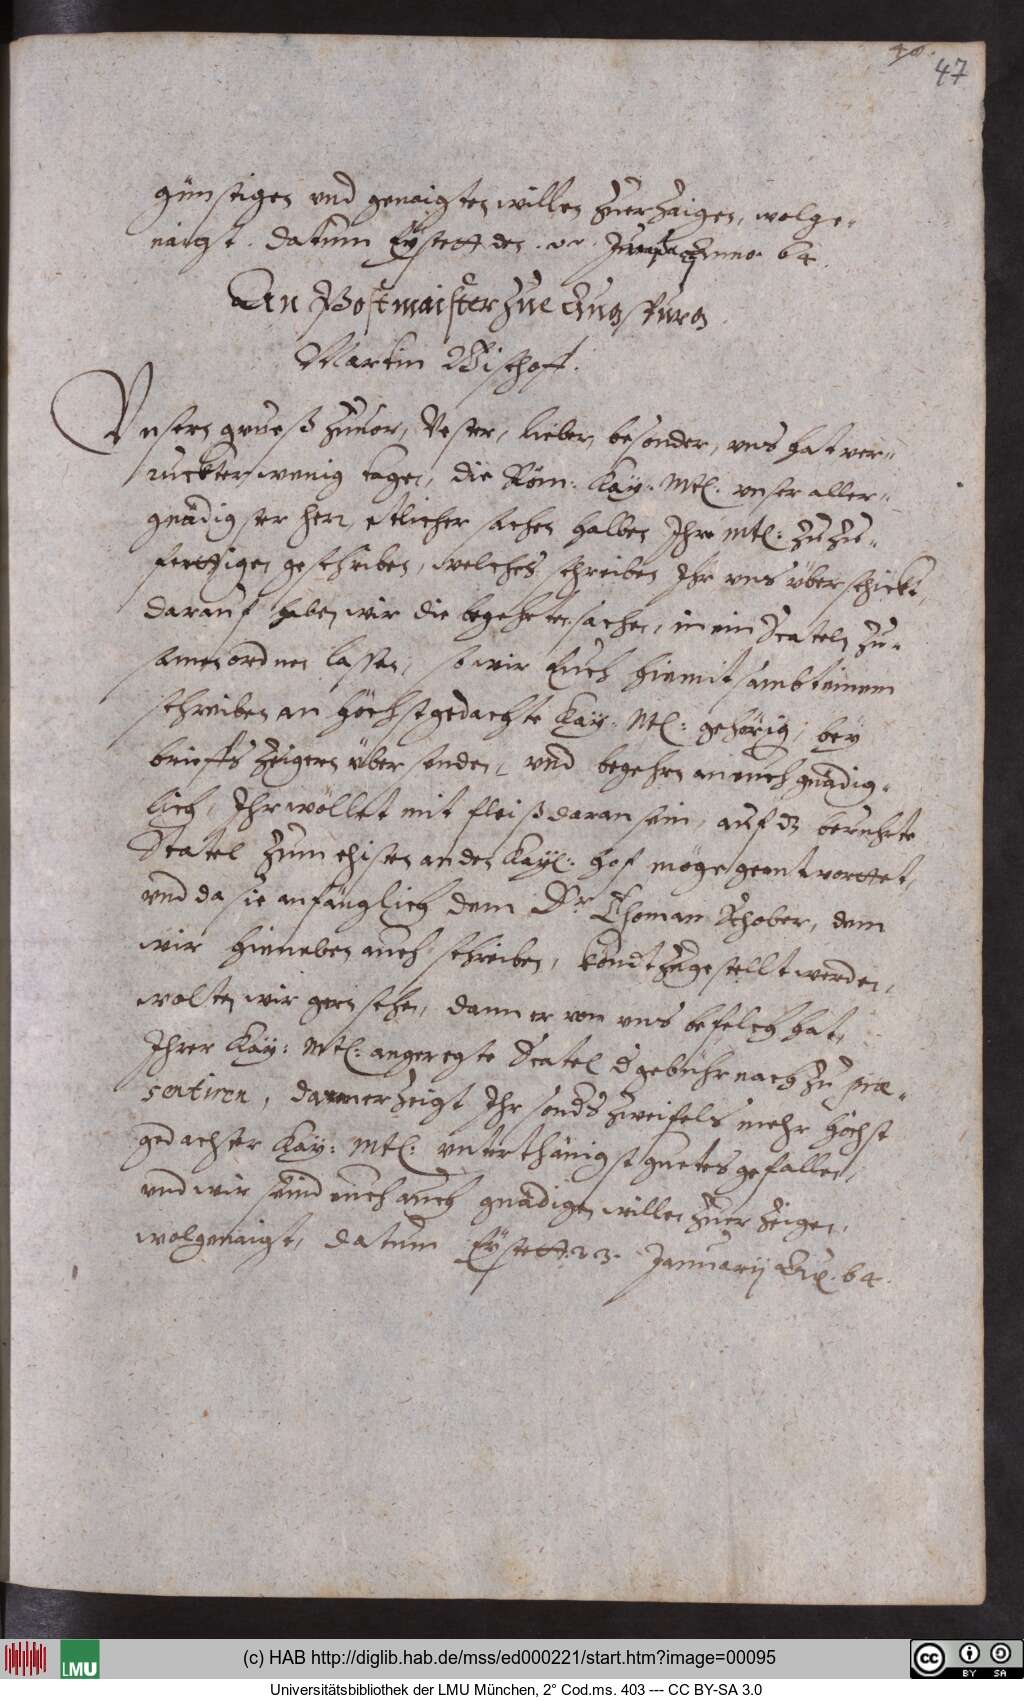 40.
47
günstigen vnd genaigten willen zuerzaigen, wolge-
naigt. Datum Eystett den Anno. 64.
An Postmaister zue Augspurg
Martin Bischoff.
Vnsern grueß zuuor, Vester, lieber, besonder, vns hat ver-
ruckter wenig tagen, die Röm: Kay: Mtl: vnser aller-
gnädigster herr, etlicher sachen halben Ihre Mtl: zuzu-
ferttigen geschriben, welches schreiben Ihr vns überschickt,
darauf haben wir die begehrten sachen, in ein Scateln zu-
samen ordnen lassen, so wir Euch hiemit sambt einem
schreiben an höchstgedachte Kay: Mtl: gehörig, bey
brieffs Zeigern übersenden, vnd begehrn an euch gnädig-
lich, Ihr wöllet mit fleiß daran sein, auf dz beruhrte
Scatel zum ehisten an den Kayl: hof möge geantworttet,
vnd da sie anfänglich dem Dr Thoman Schober, dem
wir hieneben auch schreiben, köndt zugestellt werden,
wolten wir gern sehen, dann er von vns befelch hat,
Ihrer Kay: Mtl: angeregte Scatel d gebühr nach zu præ-
sentiren, daran erzeigt Ihr sonds zweifels mehr höchst
gedachter Kay: Mtl: vnterthänigst guetes gefallen,
vnd wir seind euch auch gnädigen willen zuerzeigen,
wolgenaigt, datum Eystett. 23. Januarij Ao. 64.
(c) HAB http://diglib.hab.de/mss/ed000221/start.htm?image=00095
LMU
cc BY SA
Universitätsbibliothek der LMU München, 2° Cod.ms. 403 --- CC BY-SA 3.0